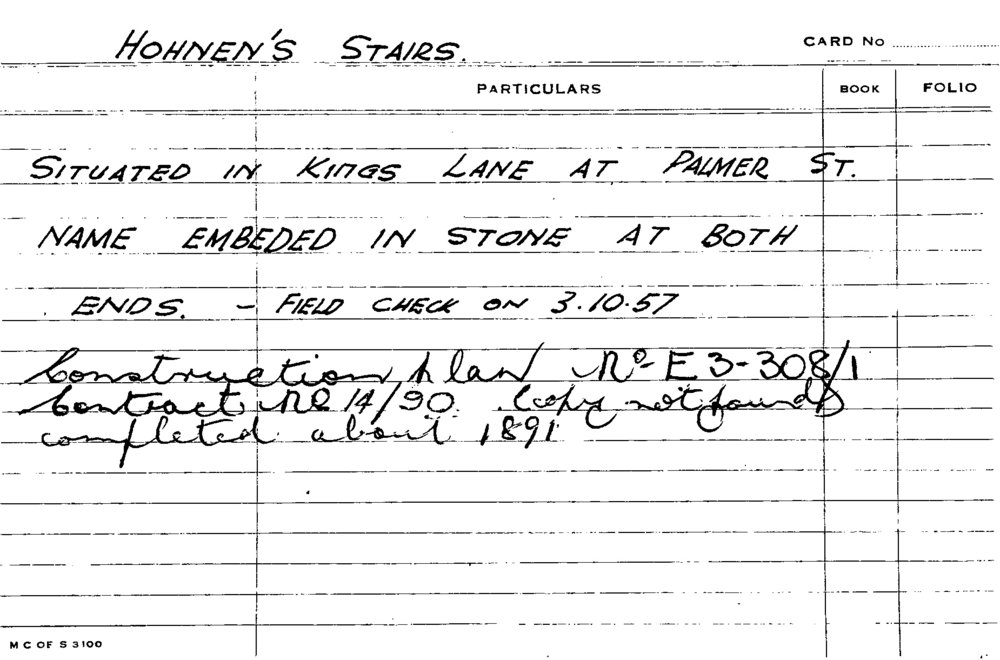 HOHNEN'S STAIRS.
CARD No
PARTICULARS BOOK FOLIO
SITUATED IN KINGS LANE AT PALMER ST.
NAME EMBEDED IN STONE AT BOTH
ENDS. - FIELD CHECK ON 3.10.57
Construction plan No E3-308/1
Contract No 14/90. Copy not found
completed about 1891
M C OF S 3100